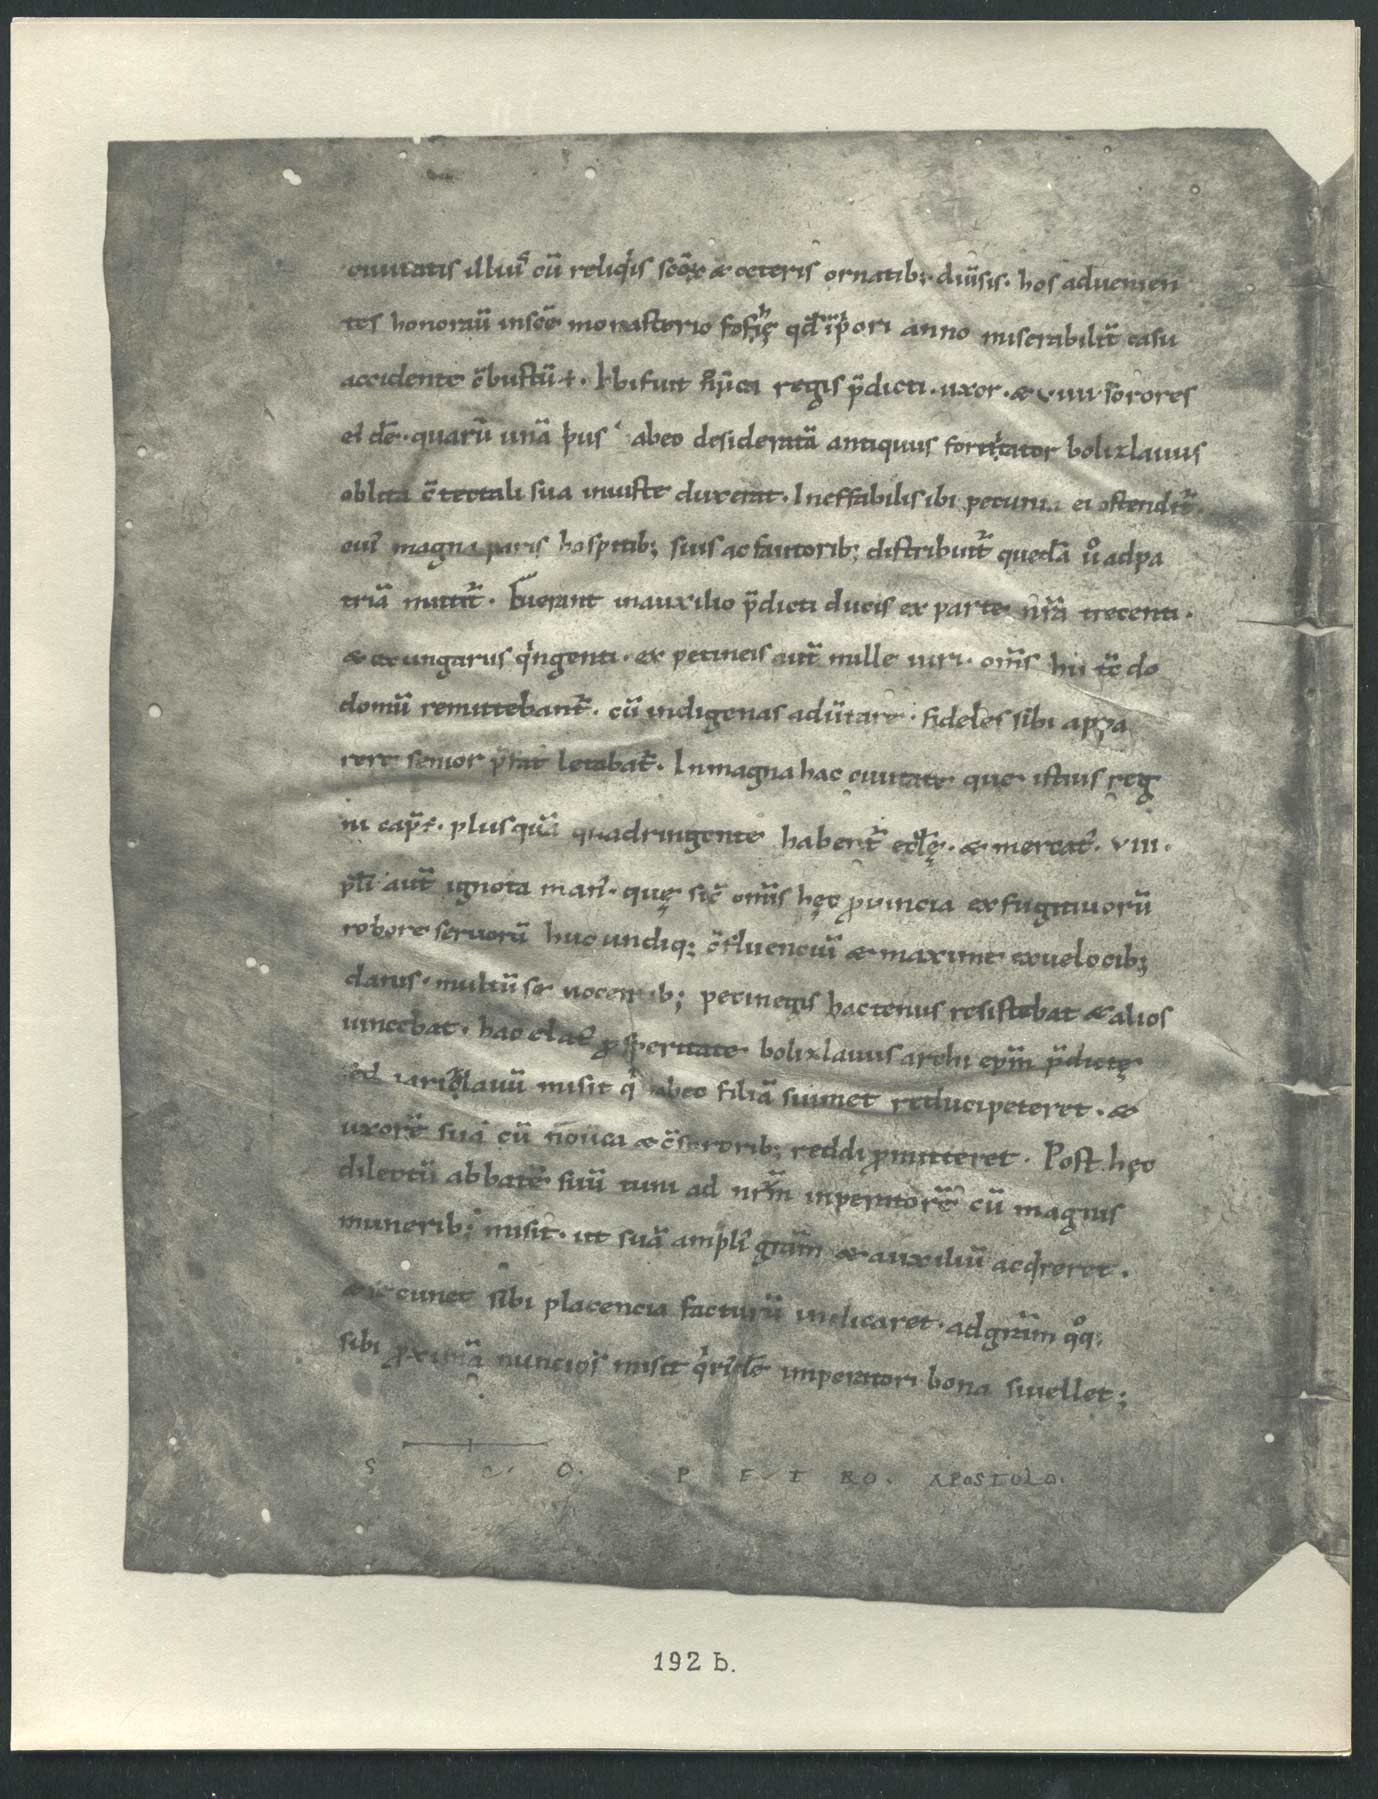 ciuitatis illius̄ cū reliq̇is scōꝝ & ceteris ornatib; · diūsis · hos aduenien
tes honorau̅ in scē monasterio sofhię qd̄ ip̄ori anno miserabilit̄ casu
accidente c̄bustū ÷ . Ibi fuit nou̅ca regis p̄dicti · uxor · & VIIII sorores
eiꝰdē · quarū unā p̄us ab eo desideratā antiquus fornicator bolizlauus
oblita c̄tectali sua iniuste duxerat · Ineffabilis ibi pecunia ei ostendit̄
cuiꝰ magna paris hospitib; suis ac fautorib; distribuit̄ quedā u̅o ad pa
triā mittit̄ . Fuerant in auxilio p̄dicti ducis ex parte nr̄a trecenti ·
& ex ungarus q̇ngenti · ex petineis aut̄ mille uiri · om̄s hii tc̄ do
domū remittebant̄ · cū indigenas adu̅tare · fideles sibi appa
rere senior p̄fat letabat̄ · In magna hac ciuitate que istius reg
ni cap̄ ÷ · plusquā quadringente habent̄ eccl̄ę · & mercatꝰ · VIII ·
pl̄i aut̄ ignota manꝰ · quę sic̄ om̄is hęc ꝓuincia ex fugitiuorū
robore seruorū huc undiq; c̄fluenciū & maxime ex uelocib;
danis · multū se nocentib; petinegis hactenus resistebat & alios
uincebat · hac elatꝰ ꝓsperitate bolizlauus archi ep̄m p̄dictę
sed̄ iarizlauū misit q̇ ab eo filiā suimet reduci peteret · &
uxorē suā cū nouca & c̄sororib; reddi ꝓmitteret · Post hęc
dilectū abbatē suū tuni ad nr̄m inperatorē cū magnis
munerib; misit · ut suā ampliꝰ gr̄am & auxiliū acq̇reret ·
& se cunct sibi placencia facturū indicaret · ad gr̄am q̊q;
sibi ꝓximā nuncios misit q̇ ridē imperatori bona si uellet ;
S C O . P E T R O . APOSTOLO .
192 b.